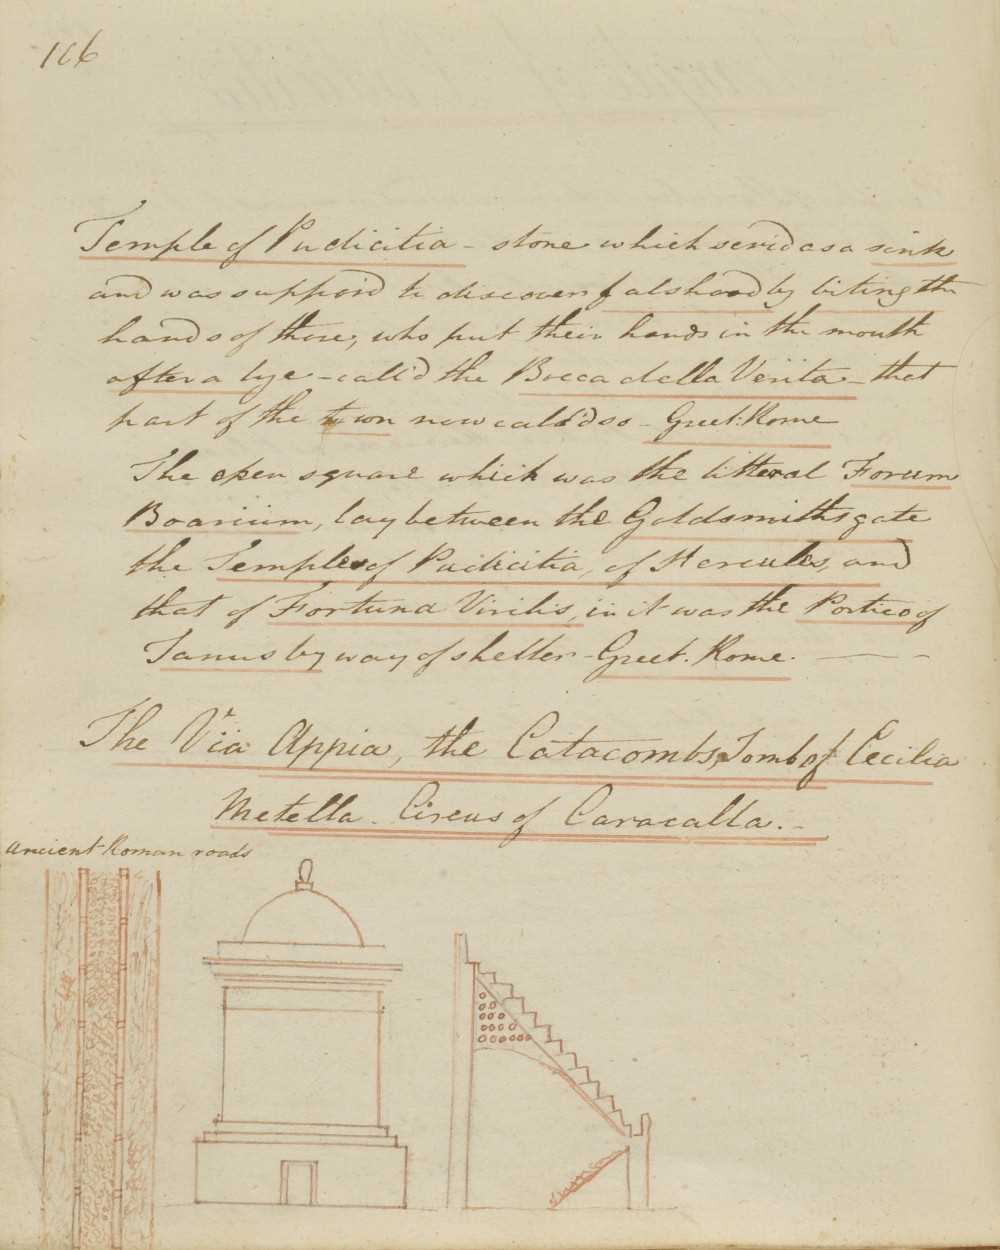 106
Temple of Pudicitia - stone which serv'd as a sink
and was suppos'd to discover falshood by biting the
hands of those, who put their hands in the mouth
after a lye - call'd the Bocca della Verita - that
part of the town now call'd so - Greet: Rome
The open square which was the litteral Forum
Boarium, lay between the Goldsmiths gate
the Temples of Pudicitia, of Hercules, and
that of Fortuna Virilis, in it was the Portico of
Janus by way of shelter - Greet. Rome.
The Via Appia, the Catacombs, Tomb of Cecilia
Metella - Circus of Caracalla. -
Ancient Roman roads